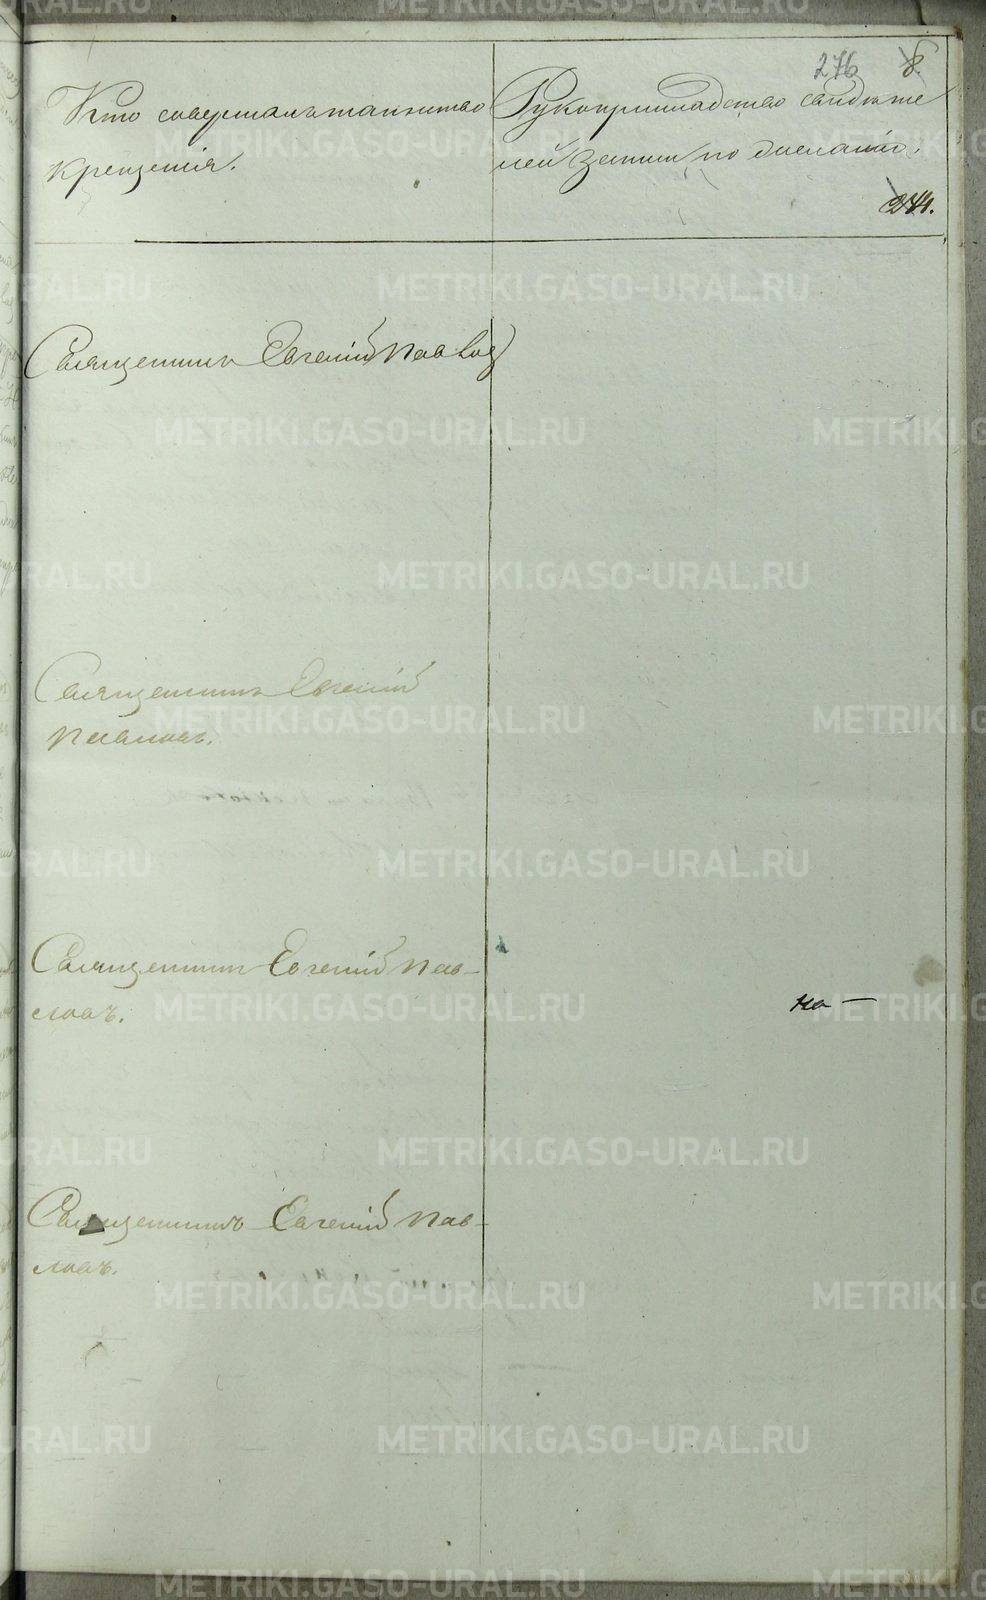 276 8.
Кто совершалъ таинство
крещенія.
Рукоприкладство свидѣте
лей записи по желанію.
274.
Священникъ Евгеній Павлов
Священникъ Евгеній
Павловъ.
Священникъ Евгеній Пав-
ловъ.
на —
Священникъ Евгеній Пав-
ловъ.
METRIKI.GASO-URAL.RU